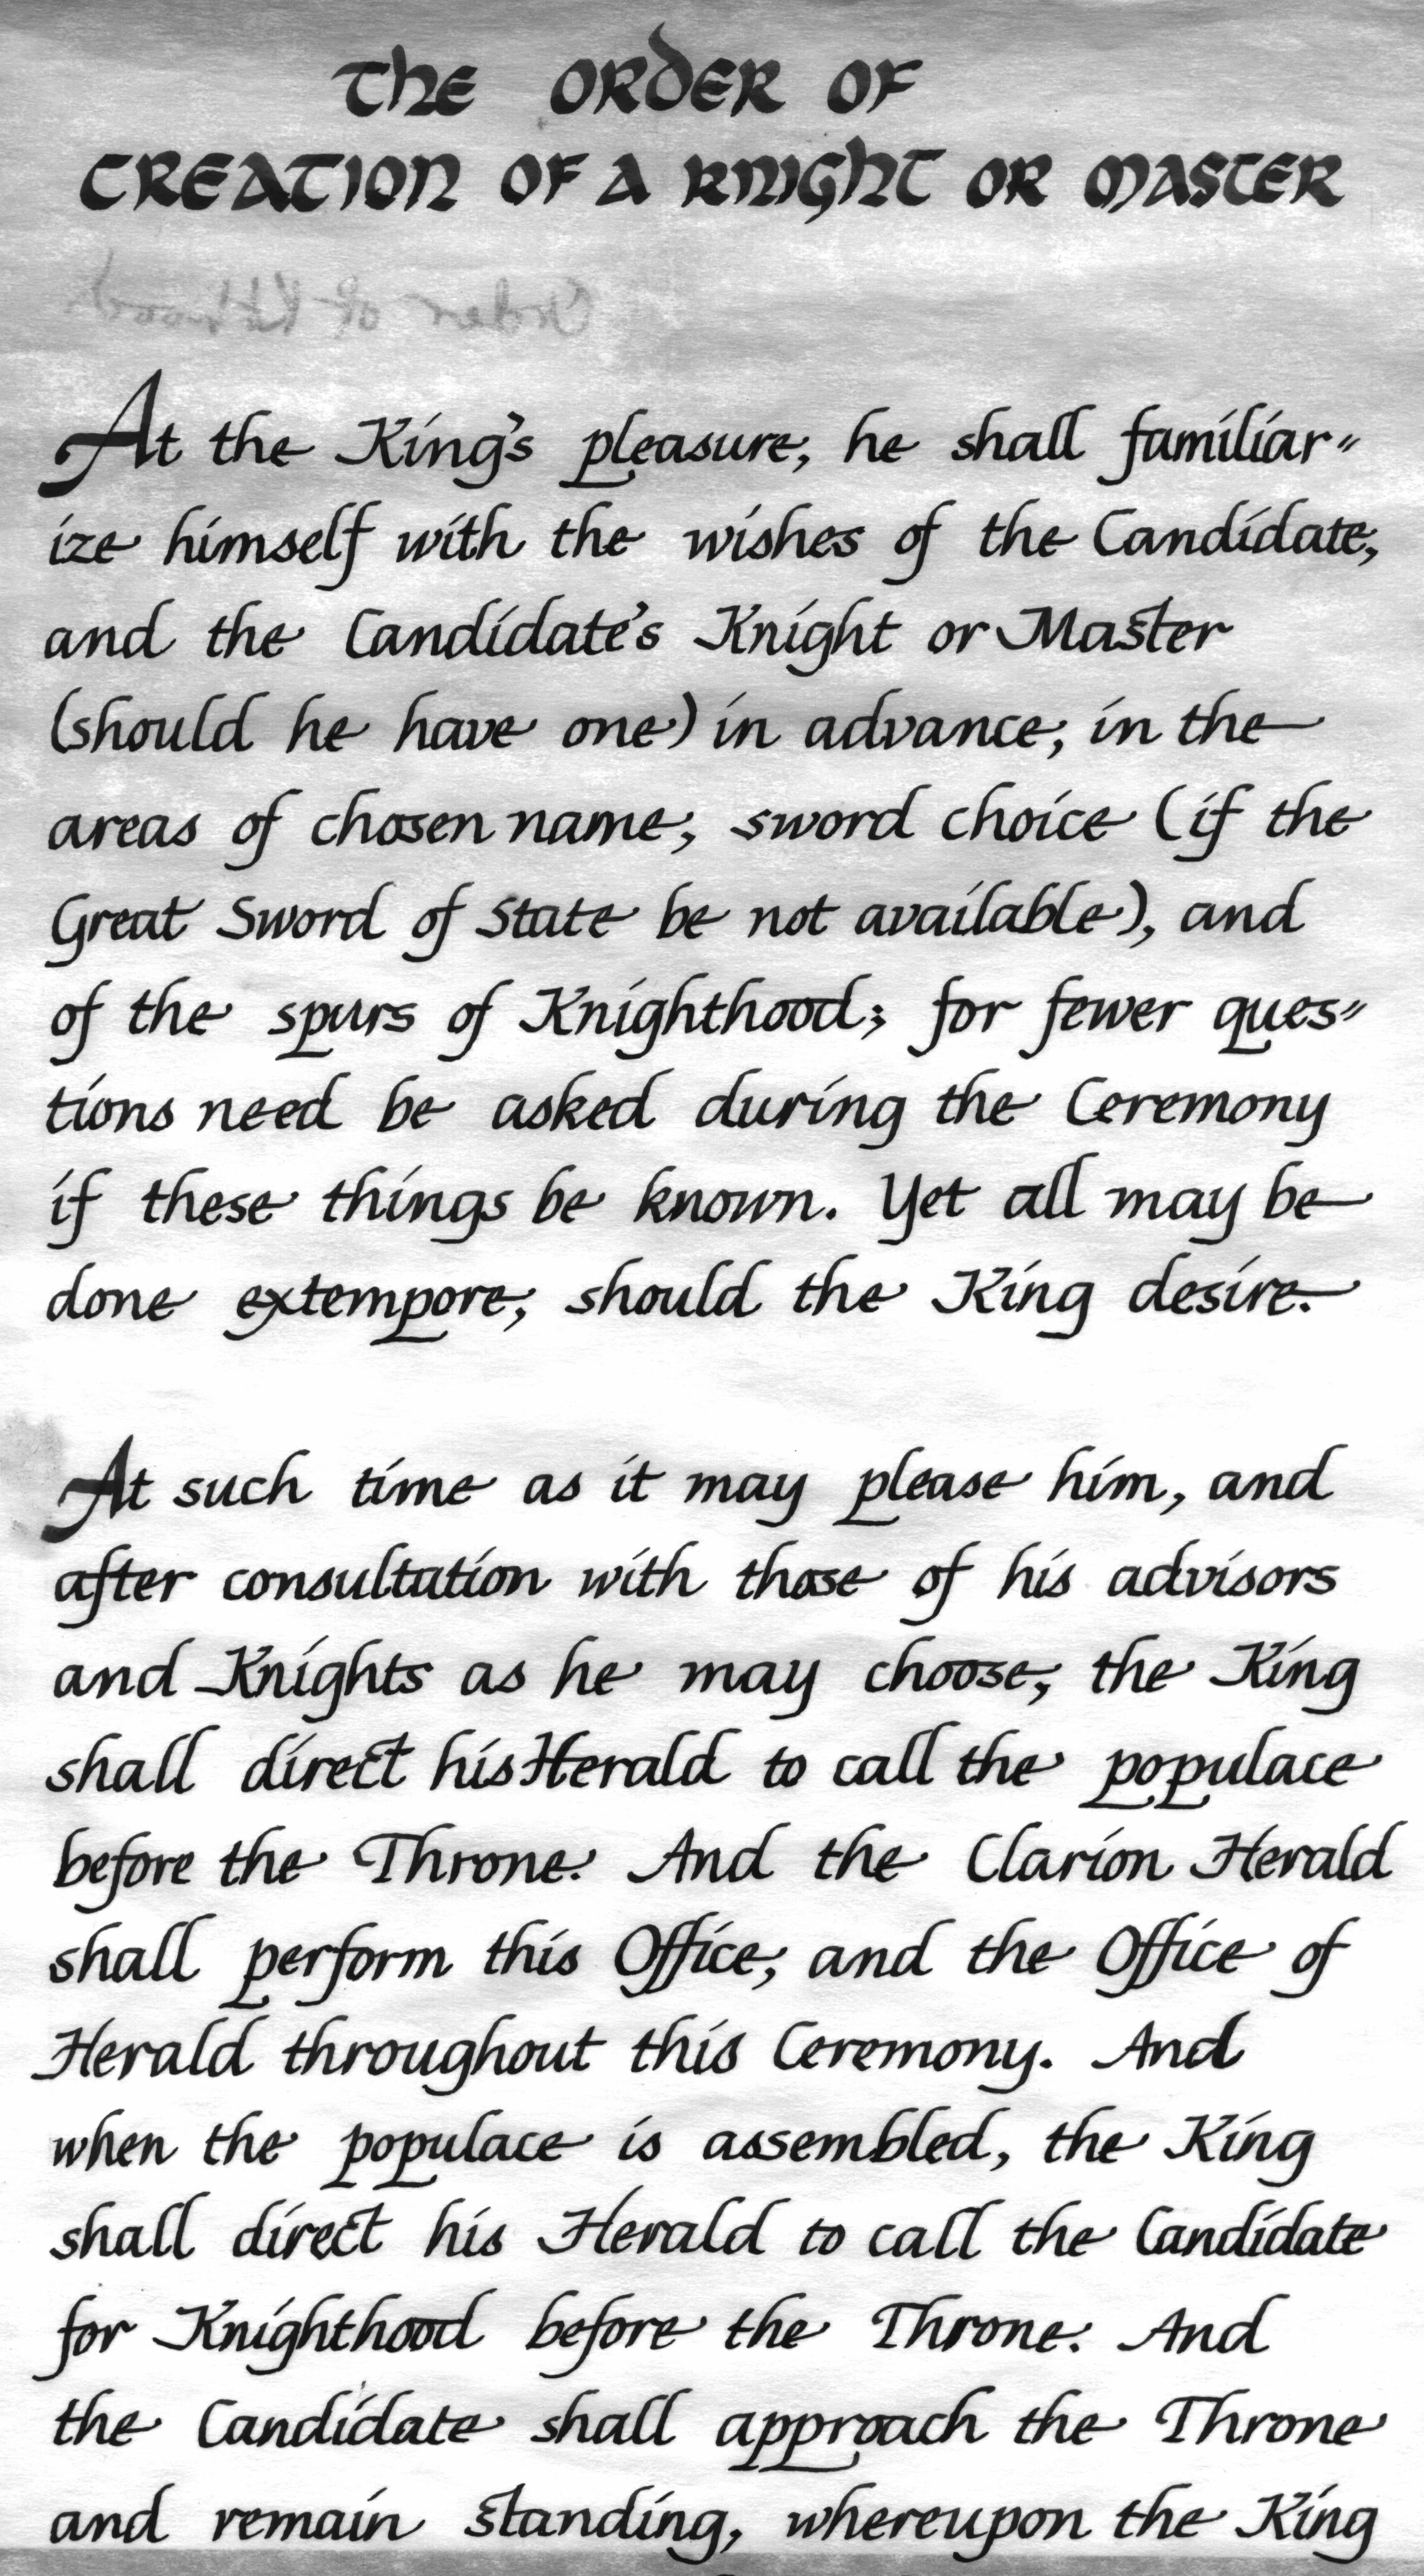 The Order of
Creation of a Knight or Master
Order of Kthood
At the King's pleasure, he shall familiar=
ize himself with the wishes of the Candidate,
and the Candidate's Knight or Master
(should he have one) in advance, in the
areas of chosen name, sword choice (if the
Great Sword of State be not available), and
of the spurs of Knighthood; for fewer ques=
tions need be asked during the Ceremony
if these things be known. Yet all may be
done extempore, should the King desire.
At such time as it may please him, and
after consultation with those of his advisors
and Knights as he may choose, the King
shall direct his Herald to call the populace
before the Throne. And the Clarion Herald
shall perform this Office, and the Office of
Herald throughout this Ceremony. And
when the populace is assembled, the King
shall direct his Herald to call the Candidate
for Knighthood before the Throne. And
the Candidate shall approach the Throne
and remain standing, whereupon the King